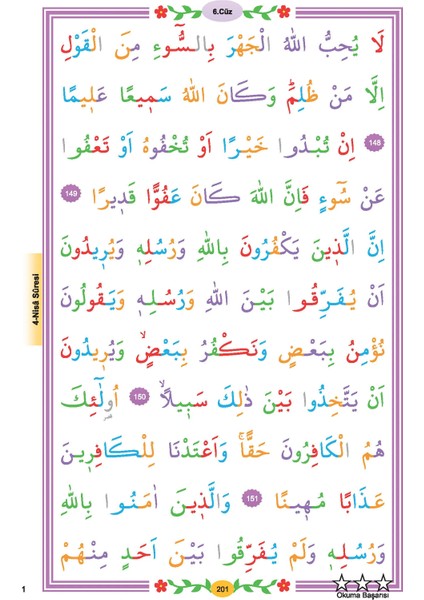 6.Cüz
لَا يُحِبُّ اللّٰهُ الْجَهْرَ بِالسُّٓوءِ مِنَ الْقَوْلِ
اِلَّا مَنْ ظُلِمَۜ وَكَانَ اللّٰهُ سَم۪يعًا عَل۪يمًا
148 اِنْ تُبْدُوا خَيْرًا اَوْ تُخْفُوهُ اَوْ تَعْفُوا
عَنْ سُٓوءٍ فَاِنَّ اللّٰهَ كَانَ عَفُوًّا قَد۪يرًا 149
اِنَّ الَّذ۪ينَ يَكْفُرُونَ بِاللّٰهِ وَرُسُلِه۪ وَيُر۪يدُونَ
اَنْ يُفَرِّقُوا بَيْنَ اللّٰهِ وَرُسُلِه۪ وَيَقُولُونَ
نُؤْمِنُ بِبَعْضٍ وَنَكْفُرُ بِبَعْضٍۙ وَيُر۪يدُونَ
اَنْ يَتَّخِذُوا بَيْنَ ذٰلِكَ سَب۪يلًاۙ 150 اُو۬لٰٓئِكَ
هُمُ الْكَافِرُونَ حَقًّاۚ وَاَعْتَدْنَا لِلْكَافِر۪ينَ
عَذَابًا مُه۪ينًا 151 وَالَّذ۪ينَ اٰمَنُوا بِاللّٰهِ
وَرُسُلِه۪ وَلَمْ يُفَرِّقُوا بَيْنَ اَحَدٍ مِنْهُمْ
4-Nisâ Sûresi
1
201
Okuma Başarısı